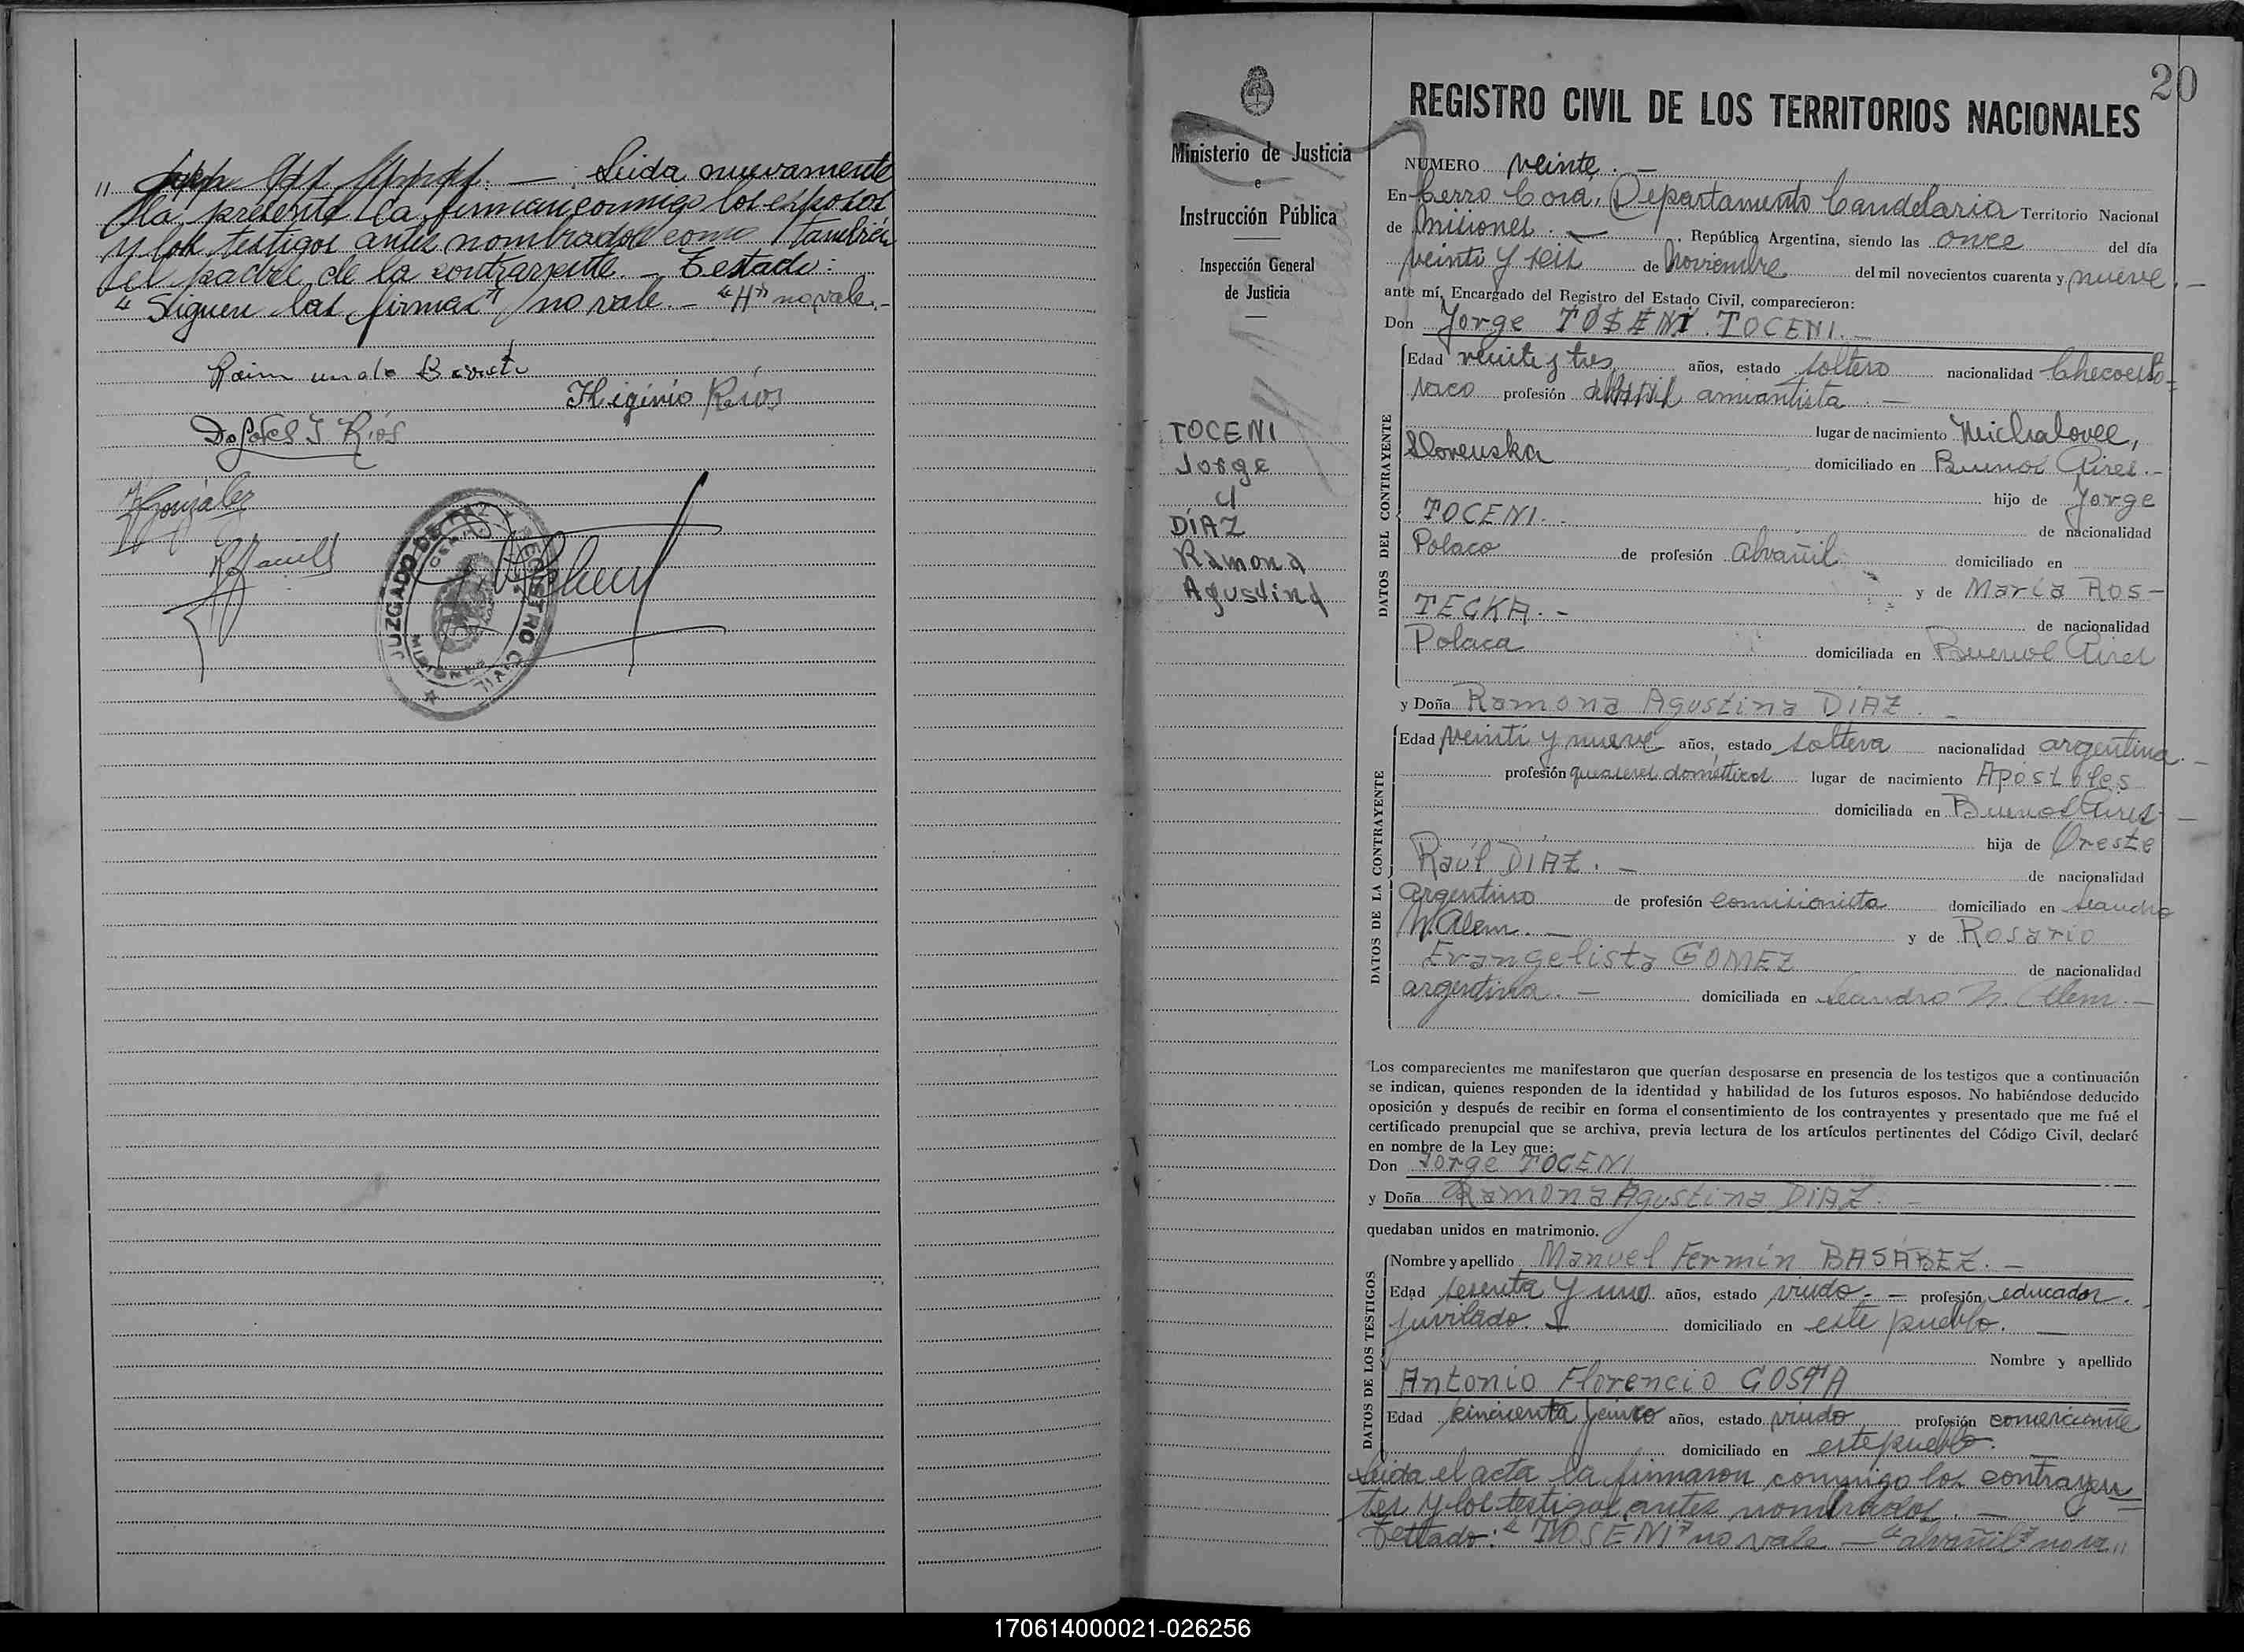 Leida nuevamente
la presente la firman conmigo los esposos
y los testigos antes nombrados como también
el padre de la contrayente. — Testado:
"Siguen las firmas" no vale. — "H" no vale. —
Higinio Ríos
Ríos
González
JUZGADO DE PAZ
REGISTRO CIVIL
MISIONES
20
Ministerio de Justicia
e
Instrucción Pública
Inspección General
de Justicia
TOCENI
Jorge
y
DÍAZ
Ramona
Agustina
REGISTRO CIVIL DE LOS TERRITORIOS NACIONALES
NUMERO veinte. —
En Cerro Corá, Departamento Candelaria Territorio Nacional
de Misiones. — , República Argentina, siendo las once del día
veinti y seis de Noviembre del mil novecientos cuarenta y nueve. —
ante mí, Encargado del Registro del Estado Civil, comparecieron:
Don Jorge TOSENI. TOCENI. —
DATOS DEL CONTRAYENTE
Edad veinte y tres años, estado soltero nacionalidad Checoeslo=
vaco profesión alvañil amiantista. —
lugar de nacimiento Michalovce,
Slovenska domiciliado en Buenos Aires. —
hijo de Jorge
TOCENI. de nacionalidad
Polaco de profesión alvañil domiciliado en
y de María ROS-
TECKA. — de nacionalidad
Polaca domiciliada en Buenos Aires
y Doña Ramona Agustina DÍAZ. —
DATOS DE LA CONTRAYENTE
Edad veinti y nueve años, estado soltera nacionalidad argentina. —
profesión quehaceres domésticos lugar de nacimiento Apóstoles
domiciliada en Buenos Aires —
hija de Oreste
Raúl DÍAZ. — de nacionalidad
argentino de profesión comisionista domiciliado en Leandro
N. Alem. — y de Rosario
Evangelista GOMEZ de nacionalidad
argentina. — domiciliada en Leandro N. Alem. —
Los comparecientes me manifestaron que querían desposarse en presencia de los testigos que a continuación
se indican, quienes responden de la identidad y habilidad de los futuros esposos. No habiéndose deducido
oposición y después de recibir en forma el consentimiento de los contrayentes y presentado que me fué el
certificado prenupcial que se archiva, previa lectura de los artículos pertinentes del Código Civil, declaré
en nombre de la Ley que:
Don Jorge TOCENI
y Doña Ramona Agustina DÍAZ. —
quedaban unidos en matrimonio.
DATOS DE LOS TESTIGOS
Nombre y apellido Manuel Fermín BASÁBEZ. —
Edad sesenta y uno años, estado viudo. — profesión educador.
juvilado. — domiciliado en este pueblo. —
Nombre y apellido
Antonio Florencio COSTA
Edad cincuenta y cinco años, estado viudo profesión comerciante
domiciliado en este pueblo. —
Leida el acta la firmaron conmigo los contrayen
tes y los testigos antes nombrados. —
Testado: "TOSENI" no vale — "alvañil" no va,,
170614000021-026256